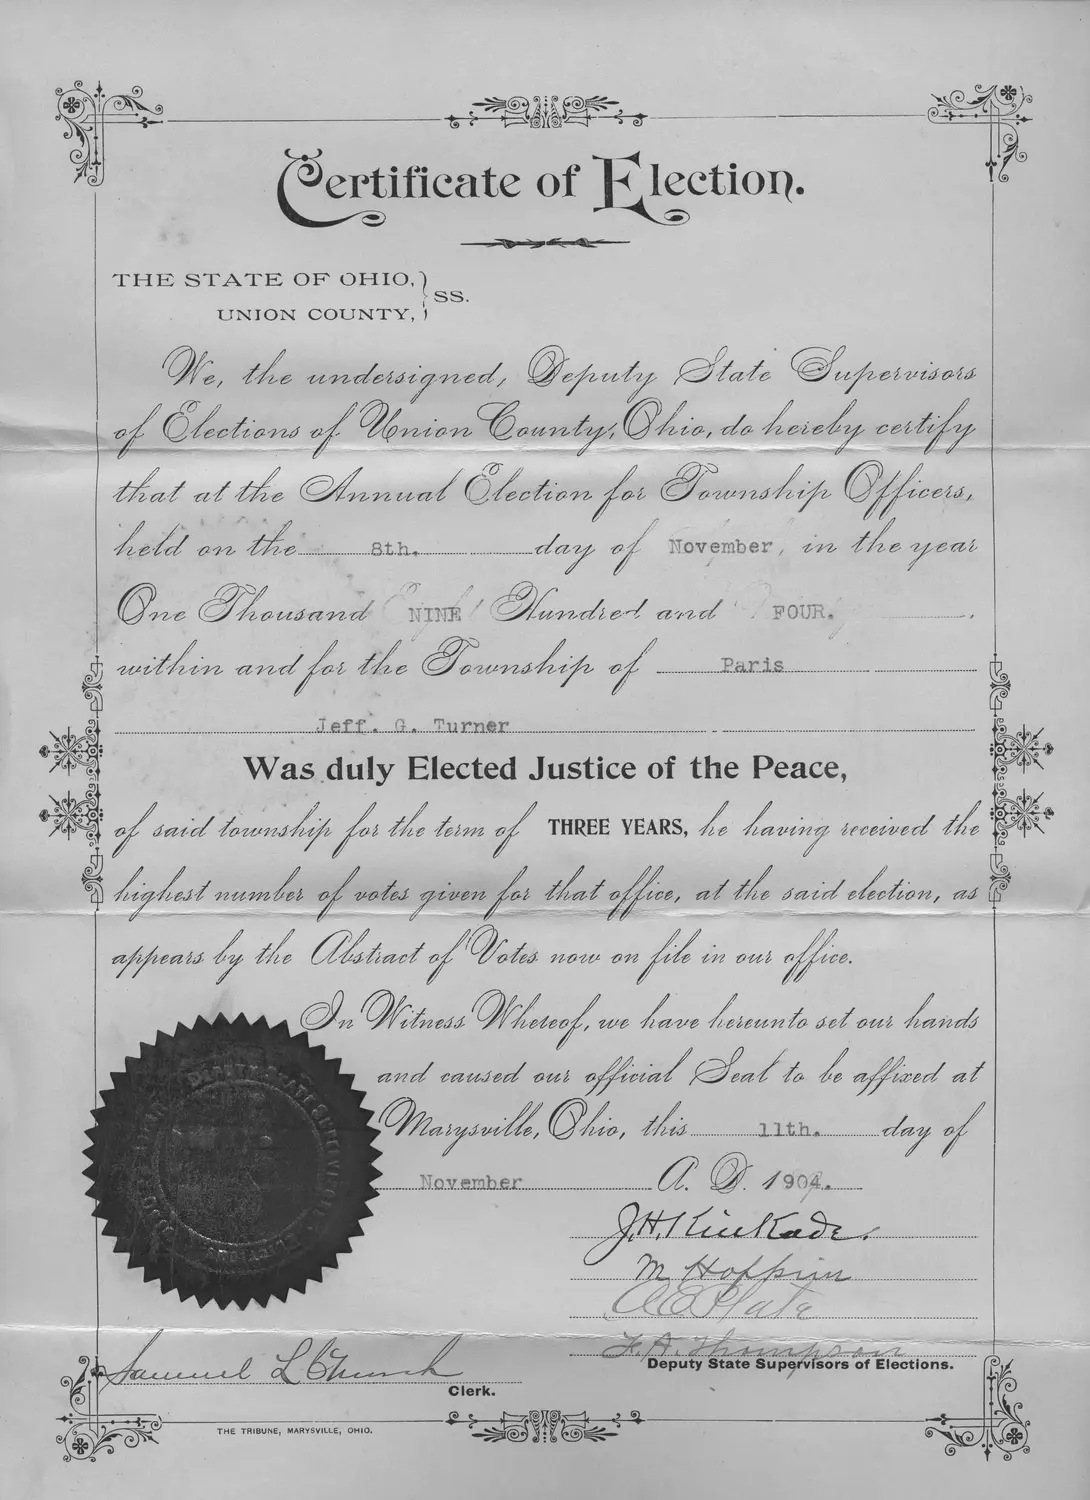 Certificate of Election.
THE STATE OF OHIO, } SS.
UNION COUNTY,
We, the undersigned, Deputy State Supervisors
of Elections of Union County, Ohio, do hereby certify
that at the Annual Election for Township Officers,
held on the 8th. day of November, in the year
One Thousand NINE Hundred and FOUR.
within and for the Township of Paris
Jeff. G. Turner
Was duly Elected Justice of the Peace,
of said township for the term of THREE YEARS, he having received the
highest number of votes given for that office, at the said election, as
appears by the Abstract of Votes now on file in our office.
In Witness Whereof, we have hereunto set our hands
and caused our official Seal to be affixed at
Marysville, Ohio, this 11th. day of
November A. D. 1904.
J. H. Kinkade.
M Hopkins
F. A. Thompson
Deputy State Supervisors of Elections.
Samuel L Church
Clerk.
THE TRIBUNE, MARYSVILLE, OHIO.